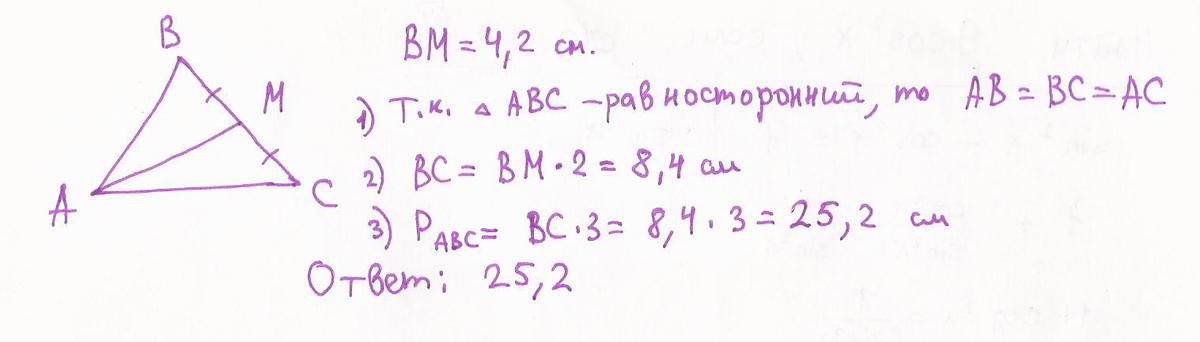 B
M
A
C
BM = 4,2 см.
1) Т.к. △ ABC – равносторонний, то AB = BC = AC
2) BC = BM · 2 = 8,4 см
3) P ABC = BC · 3 = 8,4 · 3 = 25,2 см
Ответ: 25,2